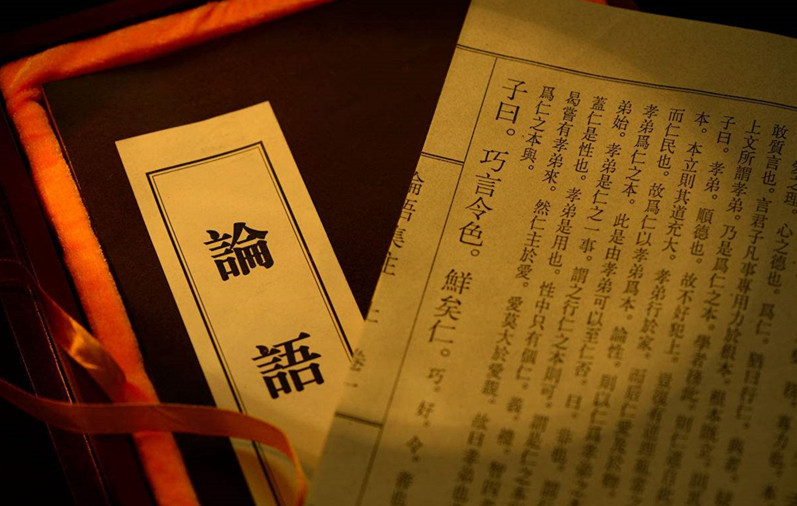 之理。心之德也。爲仁。猶曰行仁。與者。疑
敢質言也。言君子凡事專用力於根本。根本既立。則其
上文所謂孝弟。乃是爲仁之本。學者務此。則仁道自此
子曰。孝弟。順德也。故不好犯上。豈復有逆理亂常之
本。本立則其道充大。孝弟行於家。而後仁愛及於物
而仁民也。故爲仁以孝弟爲本。論性。則以仁爲孝弟之
孝弟爲仁之本。此是由孝弟可以至仁否。曰。非也。謂
弟始。孝弟是仁之一事。謂之行仁之本則可。謂是仁之本
蓋仁是性也。孝弟是用也。性中只有個仁。義。禮。智四
曷嘗有孝弟來。然仁主於愛。愛莫大於愛親。故曰孝弟也
爲仁之本與。
子曰。巧言令色。鮮矣仁。巧。好。令。善也
論語集注 卷一
論語